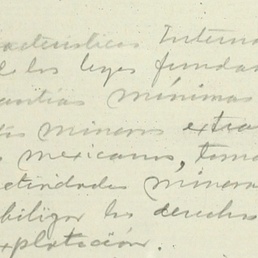 acterísticas Interna
de las leyes funda
antías mínimas
tis mineros extra
s mexicanos, toma
ctividades minera
bilizar los derechos
explotación.